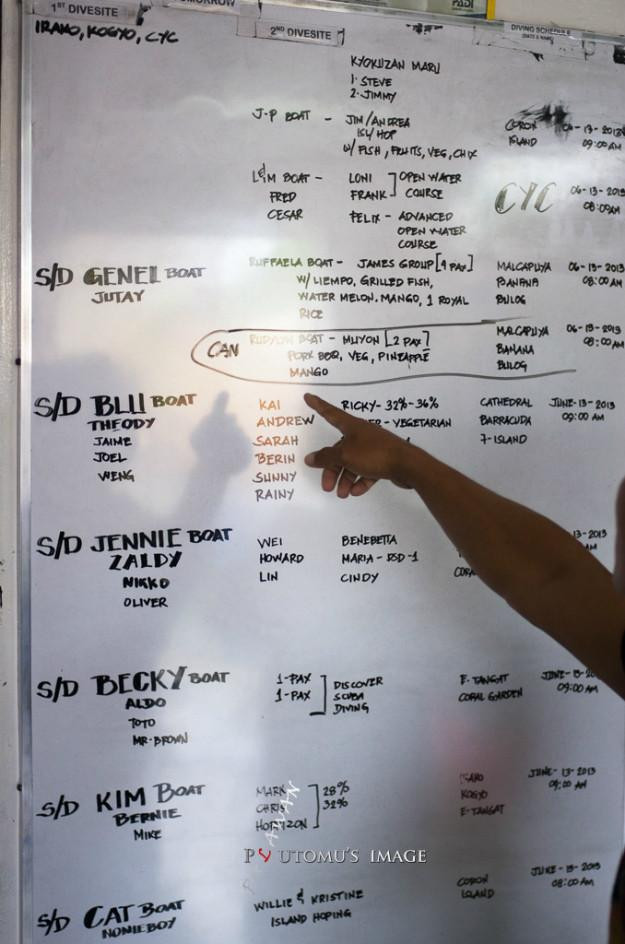 1ST DIVESITE
TOMORROW
2ND DIVESITE
DIVING SCHEDULE
(DATE & NAME)
IRAKO, KOGYO, CYC
KYOKUZAN MARU
1. STEVE
2. JIMMY
J.P BOAT - JIM/ANDREA
ISL/HOP
W/ FISH, FRUITS, VEG, CHIX
CORON 06-13-2013
ISLAND 09:00 AM
L&M BOAT - LONI OPEN WATER
FRED FRANK COURSE
CESAR FELIX - ADVANCED
OPEN WATER
COURSE
CYC 06-13-2013
08:00AM
S/D GENEL BOAT
JUTAY
RUFFAELA BOAT - JAMES GROUP [9 PAX]
W/ LIEMPO, GRILLED FISH,
WATER MELON, MANGO, 1 ROYAL
RICE
MALCAPUYA 06-13-2013
BANANA 08:00 AM
BULOG
CAN BOAT - MUYON [2 PAX]
PORK BBQ, VEG, PINEAPPLE
MANGO
MALCAPUYA 06-13-2013
BANANA 08:00 AM
BULOG
S/D BLU BOAT
THEODY
JAIME
JOEL
WENG
KAI RICKY- 32%-36%
ANDREW - VEGETARIAN
SARAH
BERIN
SUNNY
RAINY
CATHEDRAL JUNE-13-2013
BARRACUDA 09:00 AM
7-ISLAND
S/D JENNIE BOAT
ZALDY
NIKKO
OLIVER
WEI BENEBETTA
HOWARD MARIA - DSD-1
LIN CINDY
13-2013
AM
S/D BECKY BOAT
ALDO
TOTO
MR-BROWN
1-PAX DISCOVER
1-PAX SCUBA
DIVING
E. TANGAT JUNE-13-20
CORAL GARDEN 09:00 AM
S/D KIM BOAT
BERNIE
MIKE
MARK 28%
CHRIS 32%
HORIZON
IRAKO JUNE-13-2013
KOGYO 09:00 AM
E-TANGAT
S/D CAT BOAT
NONIEBOY
WILLIE & KRISTINE
ISLAND HOPING
CORON JUNE-13-2013
ISLAND 08:00 AM
UTOMU'S IMAGE